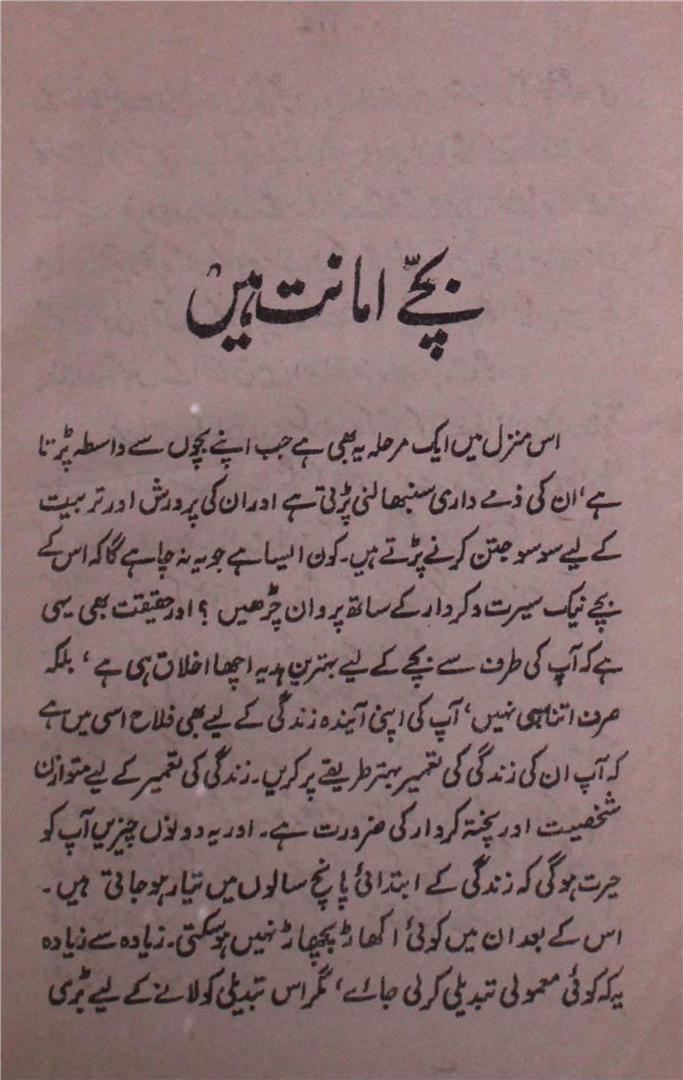 بچّے امانت ہیں
اس منزل میں ایک مرحلہ یہ بھی ہے جب اپنے بچوں سے واسطہ پڑتا
ہے، ان کی ذمے داری سنبھالنی پڑتی ہے اور ان کی پرورش اور تربیت
کے لیے سو سو جتن کرنے پڑتے ہیں۔ کون ایسا ہے جو یہ نہ چاہے گا کہ اس کے
بچے نیک سیرت و کردار کے ساتھ پروان چڑھیں؟ اور حقیقت بھی یہی
ہے کہ آپ کی طرف سے بچے کے لیے بہترین ہدیہ اچھا اخلاق ہی ہے، بلکہ
صرف اتنا ہی نہیں، آپ کی اپنی آیندہ زندگی کے لیے بھی فلاح اسی میں ہے
کہ آپ ان کی زندگی کی تعمیر بہتر طریقے پر کریں۔ زندگی کی تعمیر کے لیے متوازن
شخصیت اور پختہ کردار کی ضرورت ہے۔ اور یہ دونوں چیزیں آپ کو
حیرت ہوگی کہ زندگی کے ابتدائی پانچ سالوں میں تیار ہو جاتی ہیں۔
اس کے بعد ان میں کوئی اکھاڑ پچھاڑ نہیں ہو سکتی۔ زیادہ سے زیادہ
یہ کہ کوئی معمولی تبدیلی کرلی جائے، مگر اس تبدیلی کو لانے کے لیے بڑی